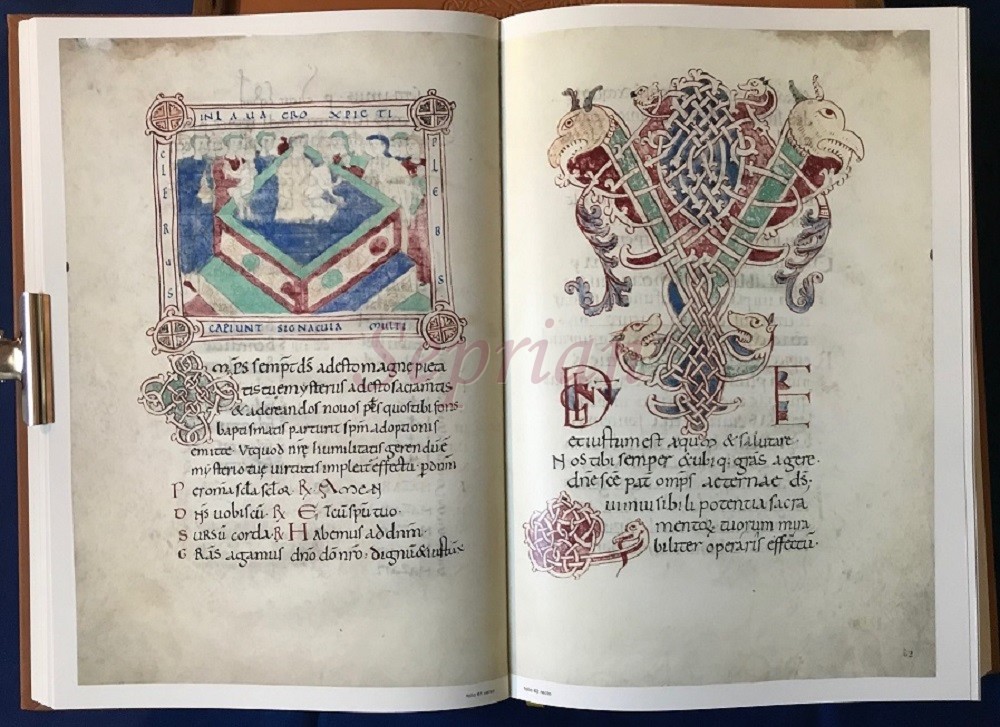 INLAUACRO XPICTI
CLERUS
PLEBS
CAPIUNT SIGNACULA MULTI
Omps sempt ds adesto magne pieta
tis tue mysteriis adesto sacramtis
& ad creandos nouos pls quos tibi fons
baptismatis parturit spm adoptionis
emitte. Ut quod nre humilitatis gerendu e
mysterio tue uirtutis impleat effectu. p dnm
Per omia scla sclor. R Amen
Dns uobiscu. R Et cu spu tuo.
Sursu corda. R Habemus ad dnm.
Gras agamus dno do nro. dignu & iustu e
V
DIGNV ERE
et iustum est aequm & salutare.
Nos tibi semper & ubiq; gras agere.
dne sce pat omps aeternae ds;
Qui inuisibili potentia sacra
mentor tuorum mira
biliter operaris effectu.
Seprian